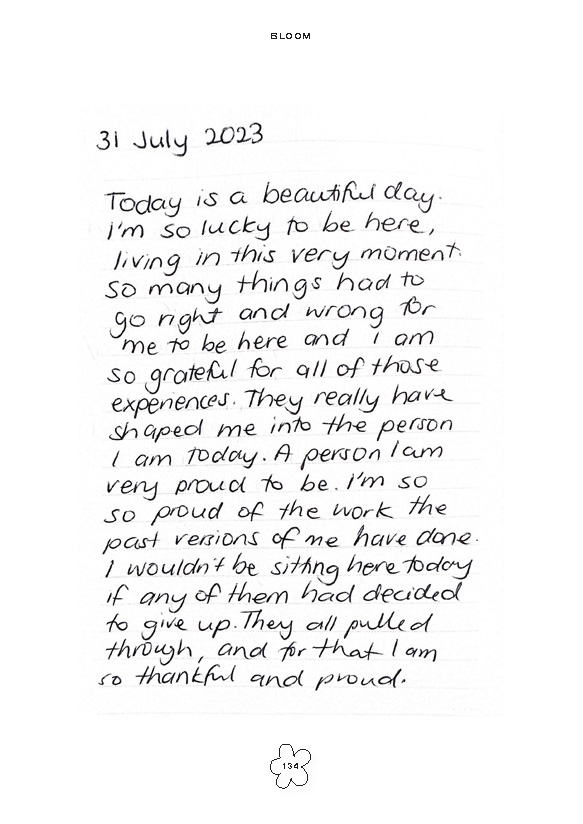 BLOOM
31 July 2023
Today is a beautiful day.
I'm so lucky to be here,
living in this very moment.
So many things had to
go right and wrong for
me to be here and I am
so grateful for all of those
experiences. They really have
shaped me into the person
I am today. A person I am
very proud to be. I'm so
so proud of the work the
past versions of me have done.
I wouldn't be sitting here today
if any of them had decided
to give up. They all pulled
through, and for that I am
so thankful and proud.
134